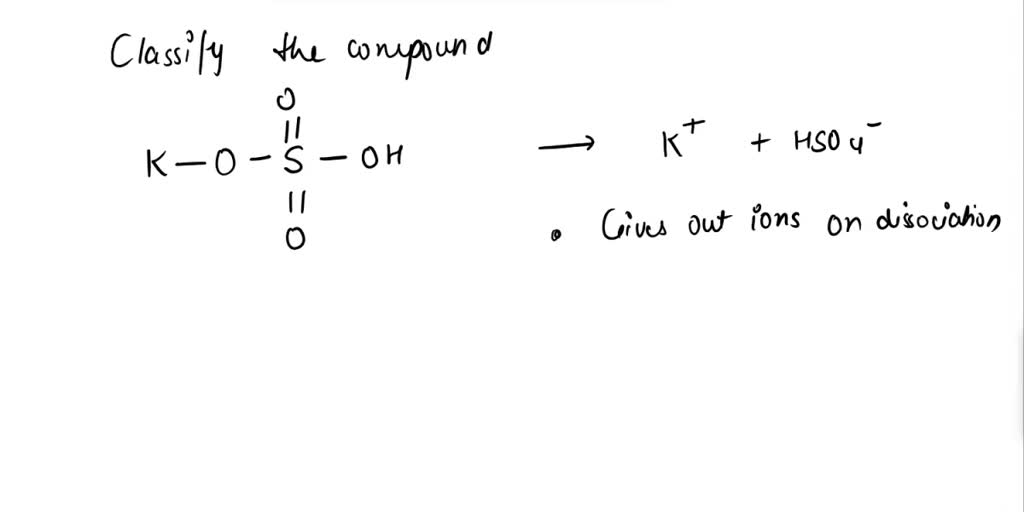 Classify the compound
O
||
K — O — S — OH ⟶ K⁺ + HSO4⁻
||
O
• Gives out ions on dissociation